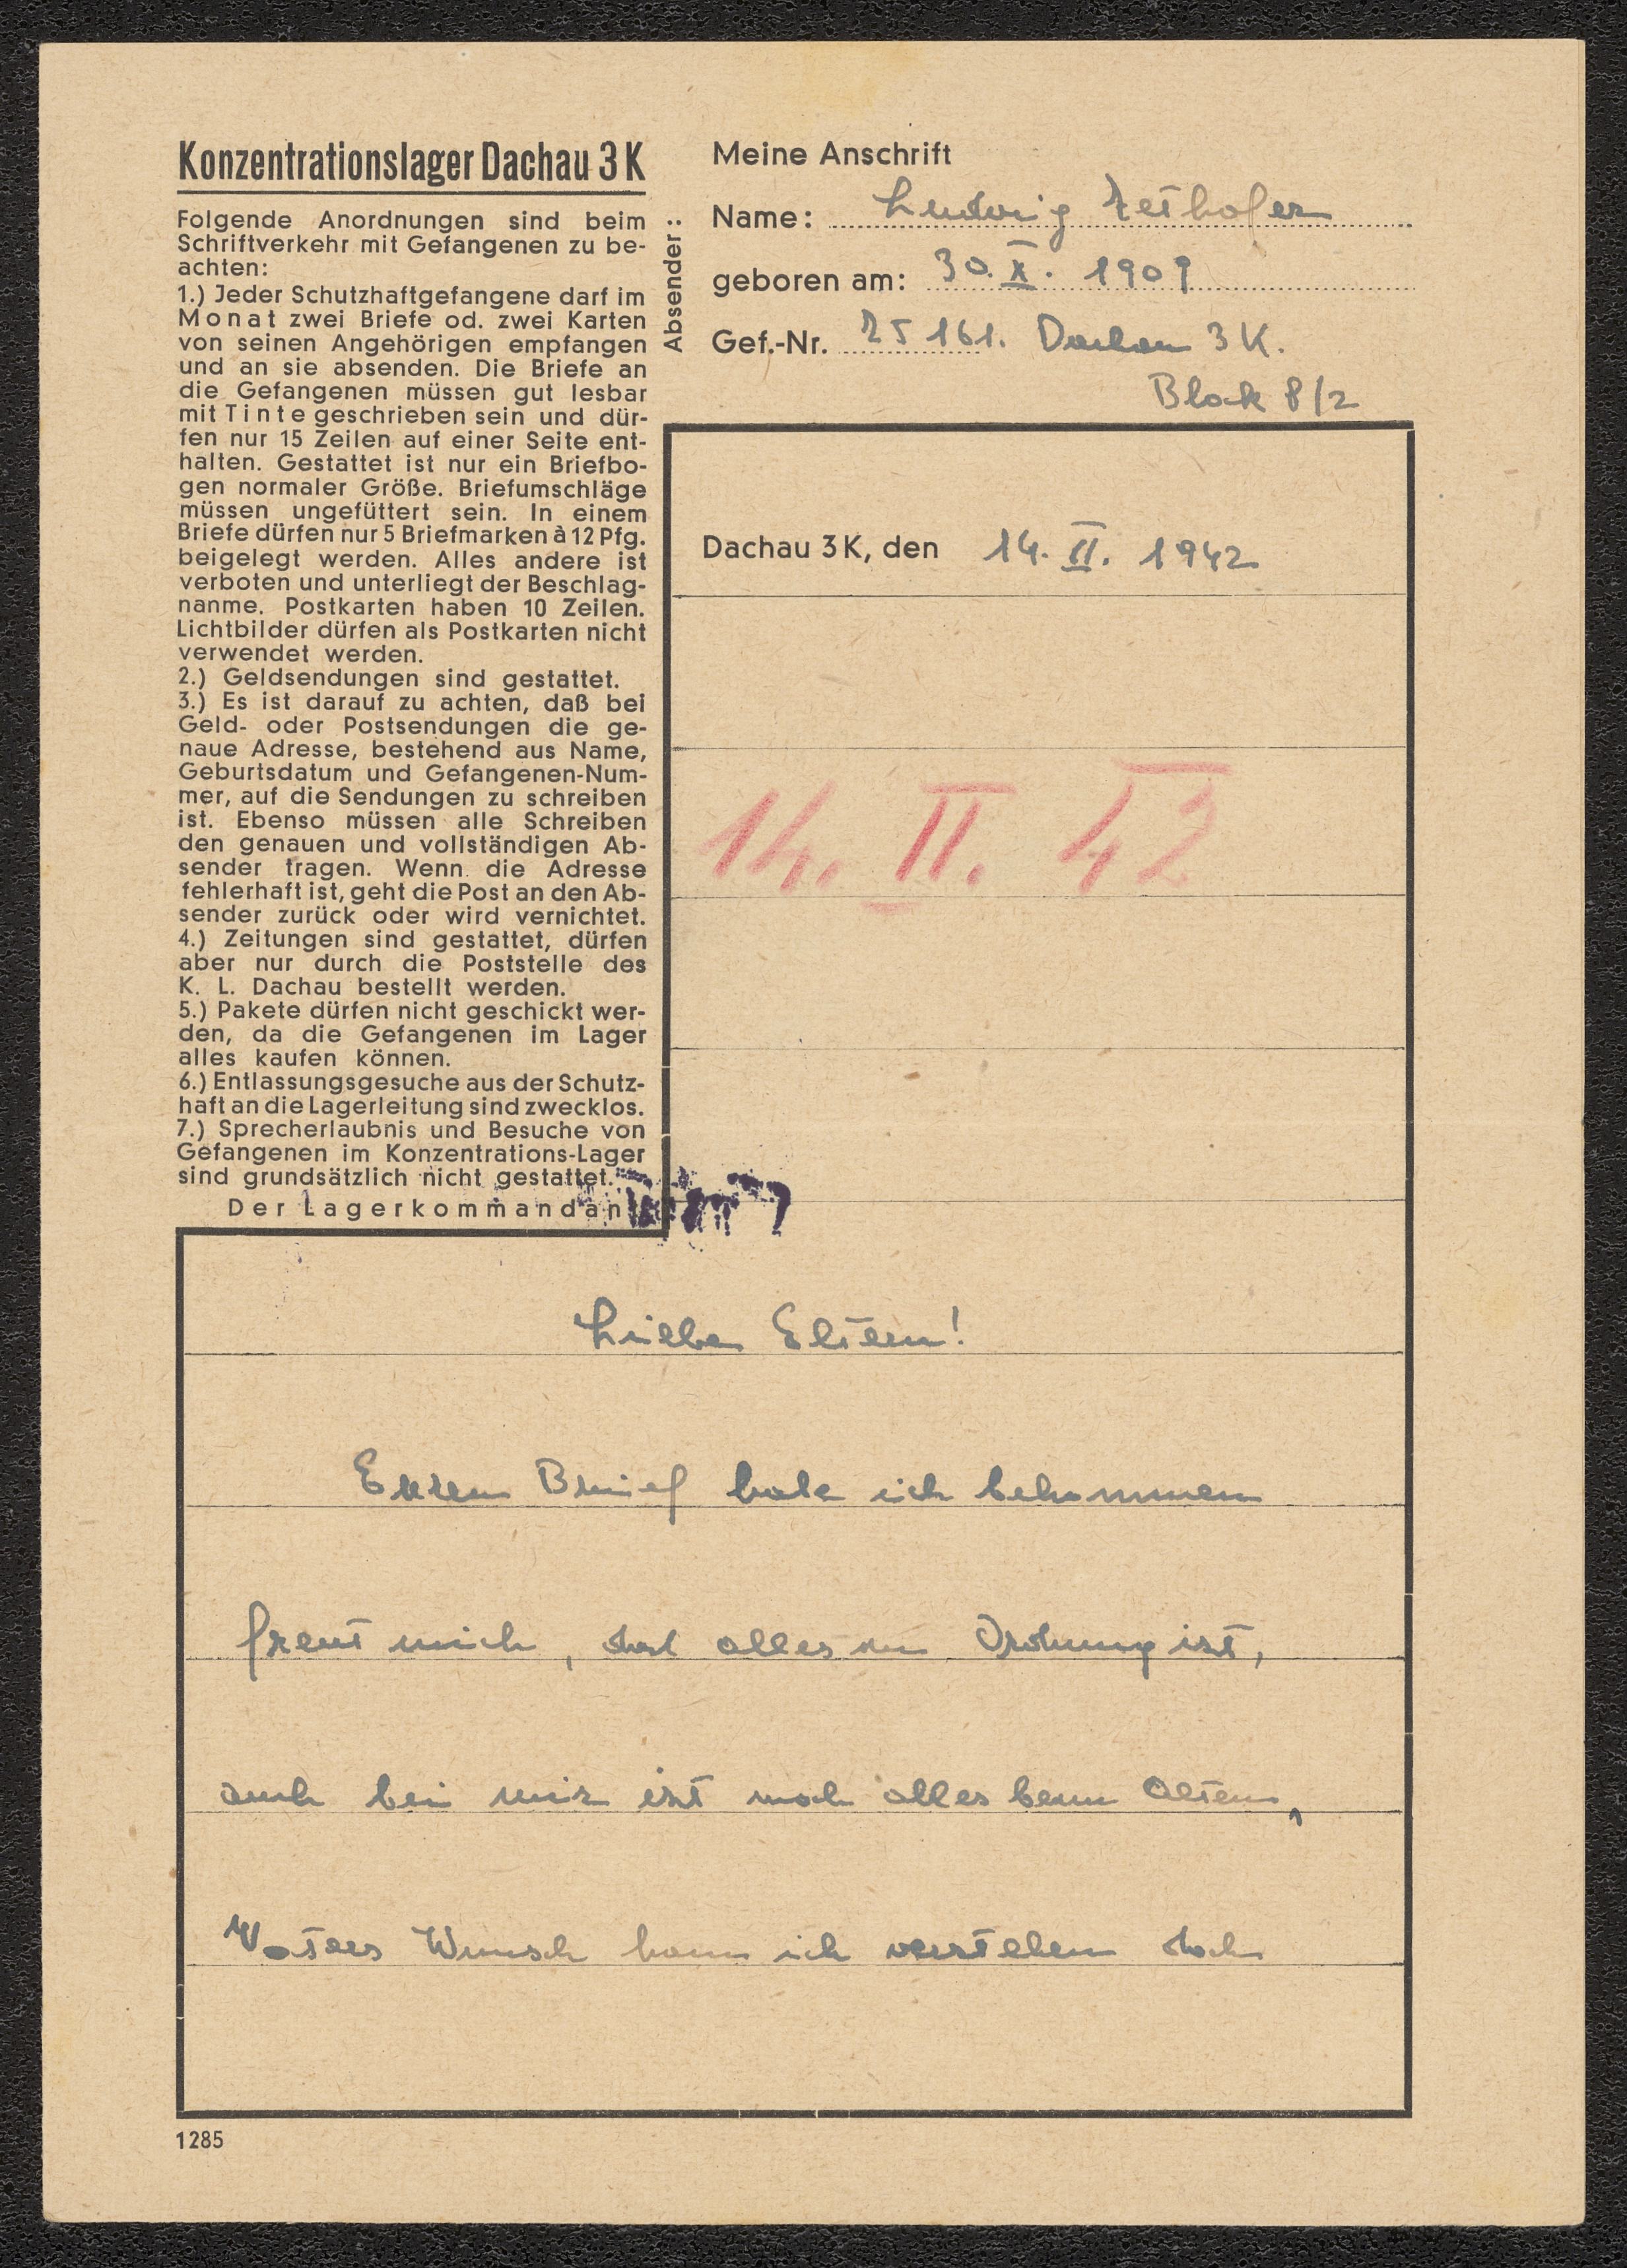 Konzentrationslager Dachau 3 K
Folgende Anordnungen sind beim
Schriftverkehr mit Gefangenen zu be-
achten:
1.) Jeder Schutzhaftgefangene darf im
Monat zwei Briefe od. zwei Karten
von seinen Angehörigen empfangen
und an sie absenden. Die Briefe an
die Gefangenen müssen gut lesbar
mit Tinte geschrieben sein und dür-
fen nur 15 Zeilen auf einer Seite ent-
halten. Gestattet ist nur ein Briefbo-
gen normaler Größe. Briefumschläge
müssen ungefüttert sein. In einem
Briefe dürfen nur 5 Briefmarken à 12 Pfg.
beigelegt werden. Alles andere ist
verboten und unterliegt der Beschlag-
nanme. Postkarten haben 10 Zeilen.
Lichtbilder dürfen als Postkarten nicht
verwendet werden.
2.) Geldsendungen sind gestattet.
3.) Es ist darauf zu achten, daß bei
Geld- oder Postsendungen die ge-
naue Adresse, bestehend aus Name,
Geburtsdatum und Gefangenen-Num-
mer, auf die Sendungen zu schreiben
ist. Ebenso müssen alle Schreiben
den genauen und vollständigen Ab-
sender tragen. Wenn die Adresse
fehlerhaft ist, geht die Post an den Ab-
sender zurück oder wird vernichtet.
4.) Zeitungen sind gestattet, dürfen
aber nur durch die Poststelle des
K. L. Dachau bestellt werden.
5.) Pakete dürfen nicht geschickt wer-
den, da die Gefangenen im Lager
alles kaufen können.
6.) Entlassungsgesuche aus der Schutz-
haft an die Lagerleitung sind zwecklos.
7.) Sprecherlaubnis und Besuche von
Gefangenen im Konzentrations-Lager
sind grundsätzlich nicht gestattet.
Der Lagerkommandan
Absender:
Meine Anschrift
Name: Ludwig Zethofer
geboren am: 30. X. 1909
Gef.-Nr. 25161. Dachau 3 K.
Block 8/2
Dachau 3 K, den 14. II. 1942
14. II. 42
Liebe Eltern!
Euren Brief habe ich bekommen
freut mich, das alles in Ordnung ist,
auch bei mir ist noch alles beim Alten,
Vaters Wunsch kann ich verstehen doch
1285